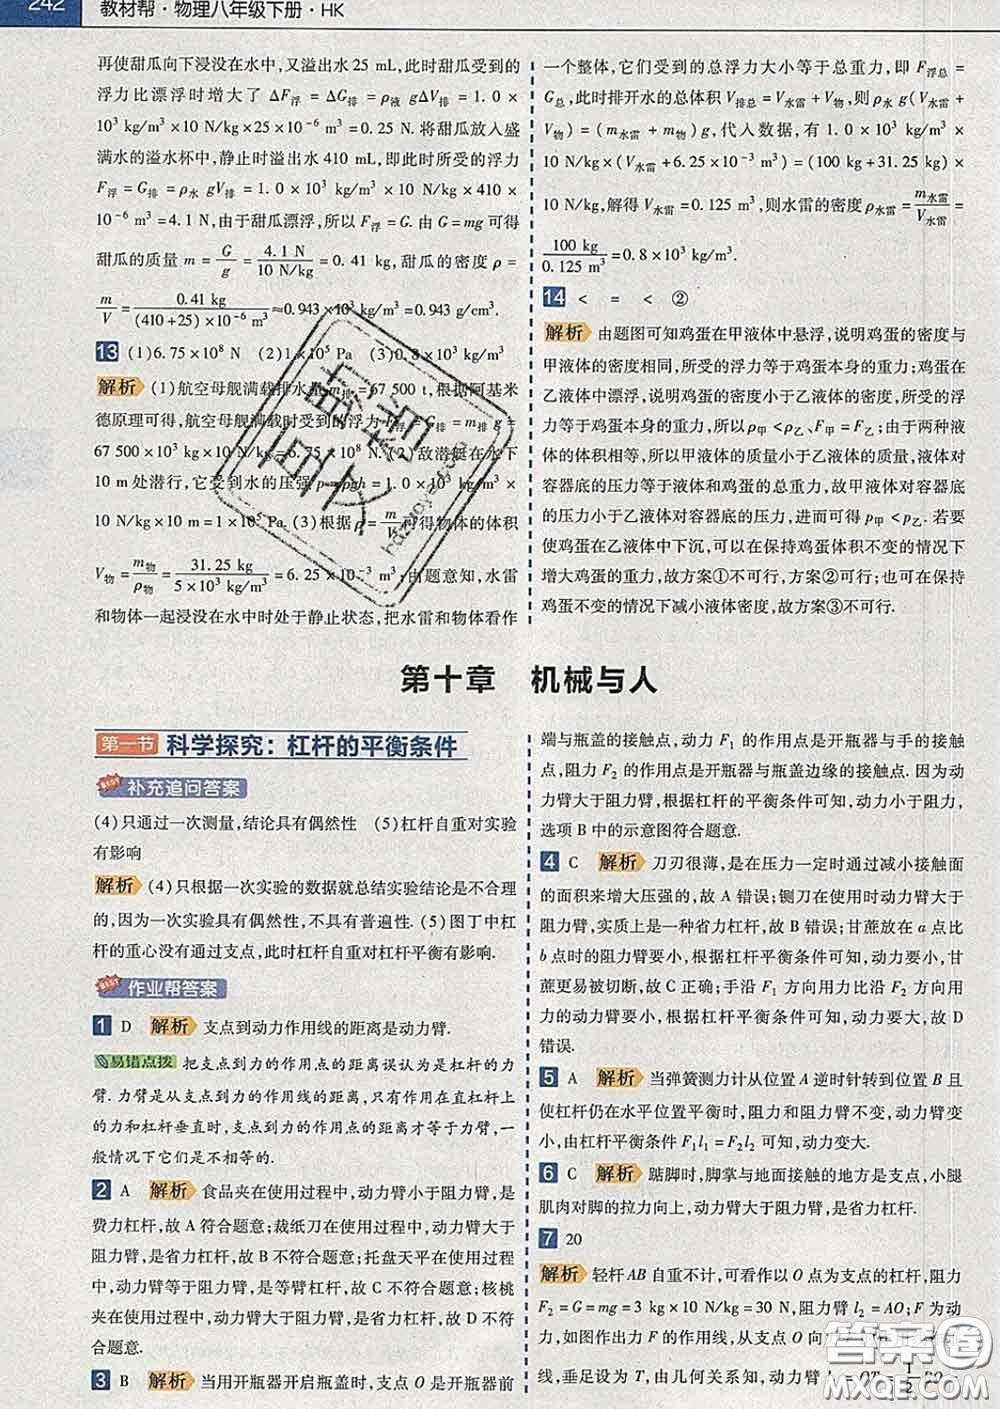 242 教材帮·物理八年级下册·HK
再使甜瓜向下浸没在水中,又溢出水 25 mL,此时甜瓜受到的
浮力比漂浮时增大了 ΔF浮 = ΔG排 = ρ液 gΔV排 = 1.0 ×
10³ kg/m³ ×10 N/kg×25×10⁻⁶ m³ =0.25 N. 将甜瓜放入盛
满水的溢水杯中,静止时溢出水 410 mL,即此时所受的浮力
F浮 = G排 = ρ水 gV排 = 1.0 × 10³ kg/m³ × 10 N/kg × 410 ×
10⁻⁶ m³ =4.1 N,由于甜瓜漂浮,所以 F浮 =G. 由 G=mg 可得
甜瓜的质量 m = G/g = 4.1 N/10 N/kg = 0.41 kg, 甜瓜的密度 ρ =
m/V = 0.41 kg/(410+25)×10⁻⁶ m³ ≈0.943 ×10³ kg/m³ =0.943 g/cm³.
13 (1)6.75×10⁸ N (2)1×10⁵ Pa (3)0.8×10³ kg/m³
解析 (1)航空母舰满载排水量 m排 = 67 500 t,根据阿基米
德原理可得,航空母舰满载时受到的浮力 F浮 = G排 = m排 g =
67 500×10³ kg×10 N/kg=6.75×10⁸ N. (2)敌潜艇在水下
10 m 处潜行,它受到水的压强 p=ρgh = 1.0 × 10³ kg/m³ ×
10 N/kg×10 m=1×10⁵ Pa. (3)根据 ρ = m/V 可得物体的体积
V物 = m物/ρ物 = 31.25 kg/5×10³ kg/m³ = 6.25 ×10⁻³ m³;由题意知,水雷
和物体一起浸没在水中时处于静止状态,把水雷和物体看作
一个整体,它们受到的总浮力大小等于总重力,即 F浮总 =
G总,此时排开水的总体积 V排总 = V水雷 + V物,则 ρ水 g(V水雷 +
V物) = (m水雷 + m物)g,代入数据,有 1.0 × 10³ kg/m³ ×
10 N/kg×(V水雷 +6.25×10⁻³ m³)=(100 kg+31.25 kg)×
10 N/kg,解得 V水雷 =0.125 m³,则水雷的密度 ρ水雷 = m水雷/V水雷 =
100 kg/0.125 m³ =0.8×10³ kg/m³.
14 < = < ②
解析 由题图可知鸡蛋在甲液体中悬浮,说明鸡蛋的密度与
甲液体的密度相同,所受的浮力等于鸡蛋本身的重力;鸡蛋在
乙液体中漂浮,说明鸡蛋的密度小于乙液体的密度,所受的浮
力等于鸡蛋本身的重力,所以 ρ甲 < ρ乙、F甲 = F乙;由于两种液
体的体积相等,所以甲液体的质量小于乙液体的质量,液体对
容器底的压力等于液体和鸡蛋的总重力,故甲液体对容器底
的压力小于乙液体对容器底的压力,进而可得 p甲 <p乙. 若要
使鸡蛋在乙液体中下沉,可以在保持鸡蛋体积不变的情况下
增大鸡蛋的重力,故方案①不可行,方案②可行;也可在保持
鸡蛋不变的情况下减小液体密度,故方案③不可行.
第十章 机械与人
第一节 科学探究:杠杆的平衡条件
补充追问答案
(4)只通过一次测量,结论具有偶然性 (5)杠杆自重对实验
有影响
解析 (4)只根据一次实验的数据就总结实验结论是不合理
的,因为一次实验具有偶然性,不具有普遍性. (5)图丁中杠
杆的重心没有通过支点,此时杠杆自重对杠杆平衡有影响.
作业帮答案
1 D 解析 支点到动力作用线的距离是动力臂.
易错点拨 把支点到力的作用点的距离误认为是杠杆的力
臂. 力臂是从支点到力的作用线的距离,只有作用在直杠杆上
的力和杠杆垂直时,支点到力的作用点的距离才等于力臂,一
般情况下它们是不相等的.
2 A 解析 食品夹在使用过程中,动力臂小于阻力臂,是
费力杠杆,故 A 符合题意;裁纸刀在使用过程中,动力臂大于
阻力臂,是省力杠杆,故 B 不符合题意;托盘天平在使用过程
中,动力臂等于阻力臂,是等臂杠杆,故 C 不符合题意;核桃
夹在使用过程中,动力臂大于阻力臂,是省力杠杆,故 D 不符
合题意.
3 B 解析 当用开瓶器开启瓶盖时,支点 O 是开瓶器前
端与瓶盖的接触点,动力 F₁ 的作用点是开瓶器与手的接触
点,阻力 F₂ 的作用点是开瓶器与瓶盖边缘的接触点. 因为动
力臂大于阻力臂,根据杠杆的平衡条件可知,动力小于阻力,
选项 B 中的示意图符合题意.
4 C 解析 刀刃很薄,是在压力一定时通过减小接触面
的面积来增大压强的,故 A 错误;铡刀在使用时动力臂大于
阻力臂,实质上是一种省力杠杆,故 B 错误;甘蔗放在 a 点比
b 点时的阻力臂要小,根据杠杆平衡条件可知,动力要小,甘
蔗更易被切断,故 C 正确;手沿 F₁ 方向用力比沿 F₂ 方向用力
的动力臂要小,根据杠杆平衡条件可知,动力要大,故 D
错误.
5 A 解析 当弹簧测力计从位置 A 逆时针转到位置 B 且
使杠杆仍在水平位置平衡时,阻力和阻力臂不变,动力臂变
小,由杠杆平衡条件 F₁l₁=F₂l₂ 可知,动力变大.
6 C 解析 踮脚时,脚掌与地面接触的地方是支点,小腿
肌肉对脚的拉力向上,动力臂大于阻力臂,是省力杠杆.
7 20
解析 轻杆 AB 自重不计,可看作以 O 点为支点的杠杆,阻力
F₂ =G=mg=3 kg ×10 N/kg=30 N,阻力臂 l₂ =AO;F 为动
力,如图作出力 F 的作用线,从支点 O 向
线,垂足设为 T,由几何关系知,动力臂 =OT= 1/2
答案圈
MXQE.COM
hdzuoye.com